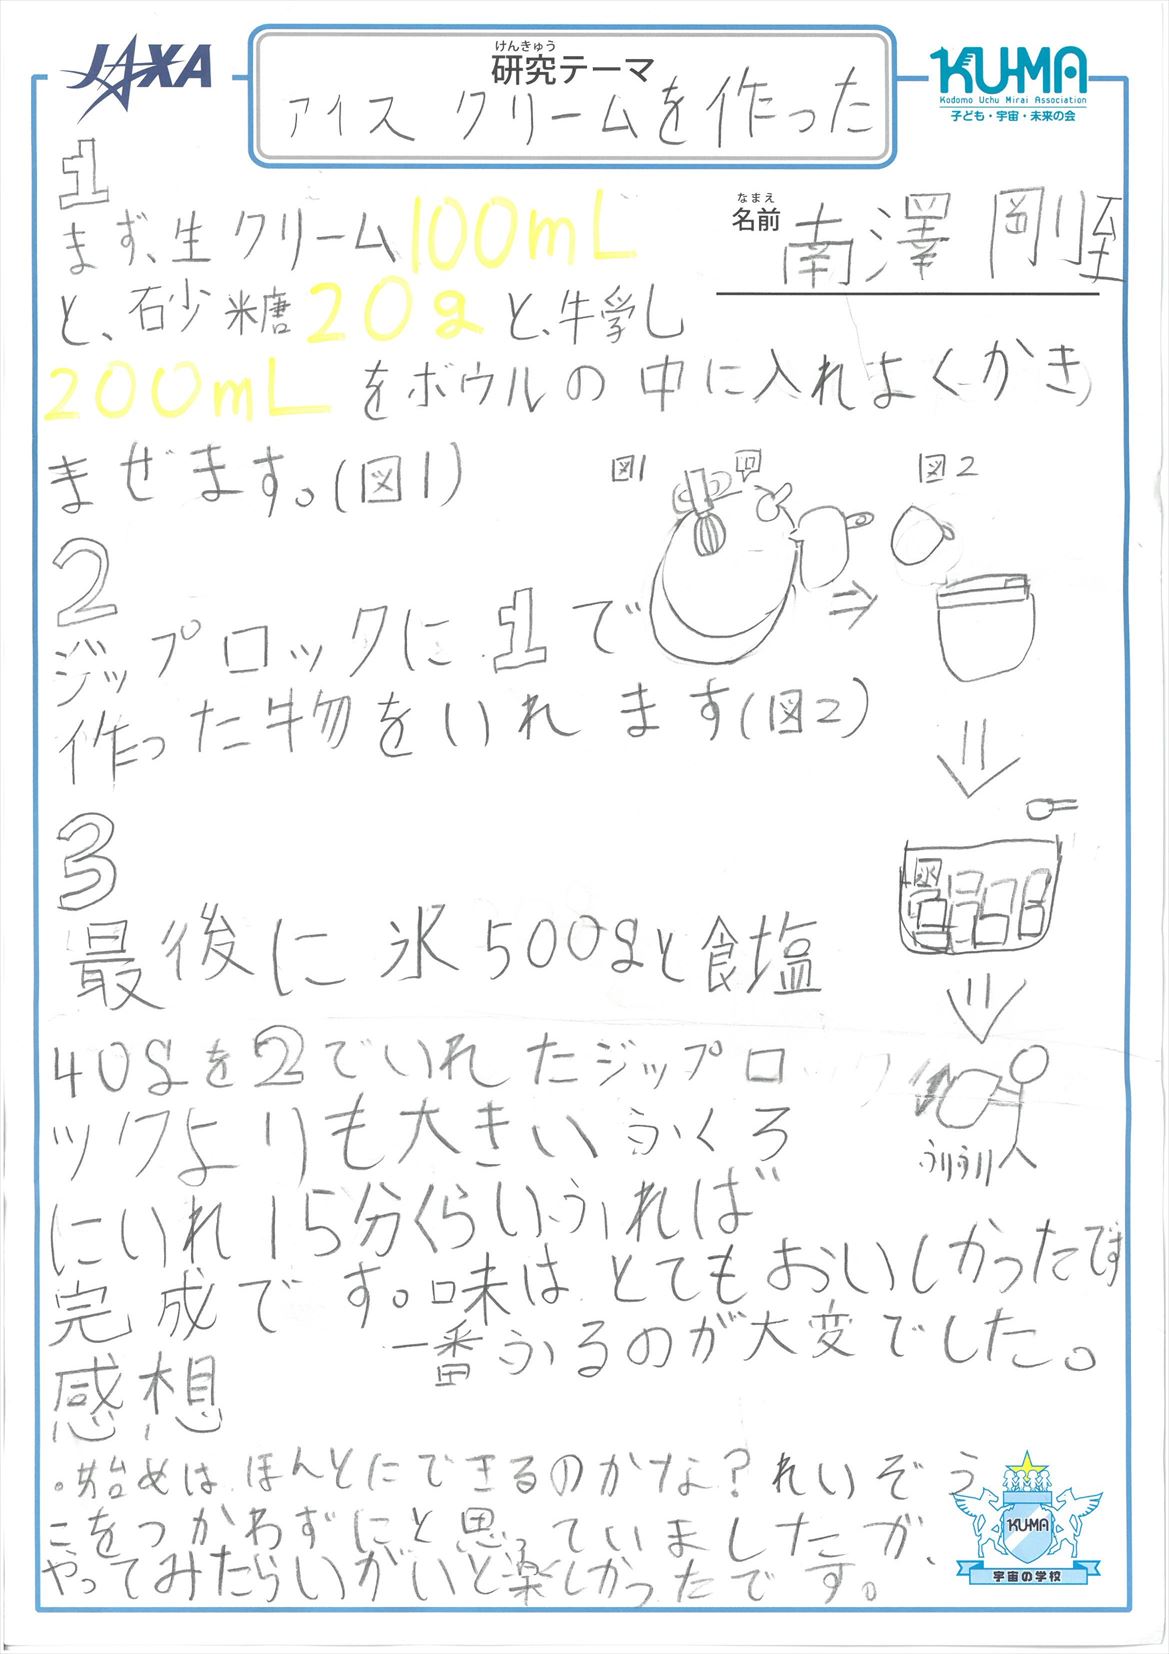 JAXA
けんきゅう
研究テーマ
アイスクリームを作った
KU-MA
Kodomo Uchu Mirai Association
子ども・宇宙・未来の会
1
なまえ
名前
南澤 剛
まず、生クリーム100mL
と、砂糖20gと、牛乳
200mLをボウルの中に入れよくかき
まぜます。(図1)
図1
図2
2
ジップロックに1で
作った物をいれます(図2)
3
氷
最後に氷500gと食塩
40gを2でいれたジップロ
ックよりも大きいふくろ
ふりふり
にいれ15分くらいふれば
完成です。味はとてもおいしかったです
一番ふるのが大変でした。
感想
・始めは、ほんとにできるのかな?れいぞう
こをつかわずにと思っていましたが、
やってみたらいがいと楽しかったです。
KU-MA
宇宙の学校